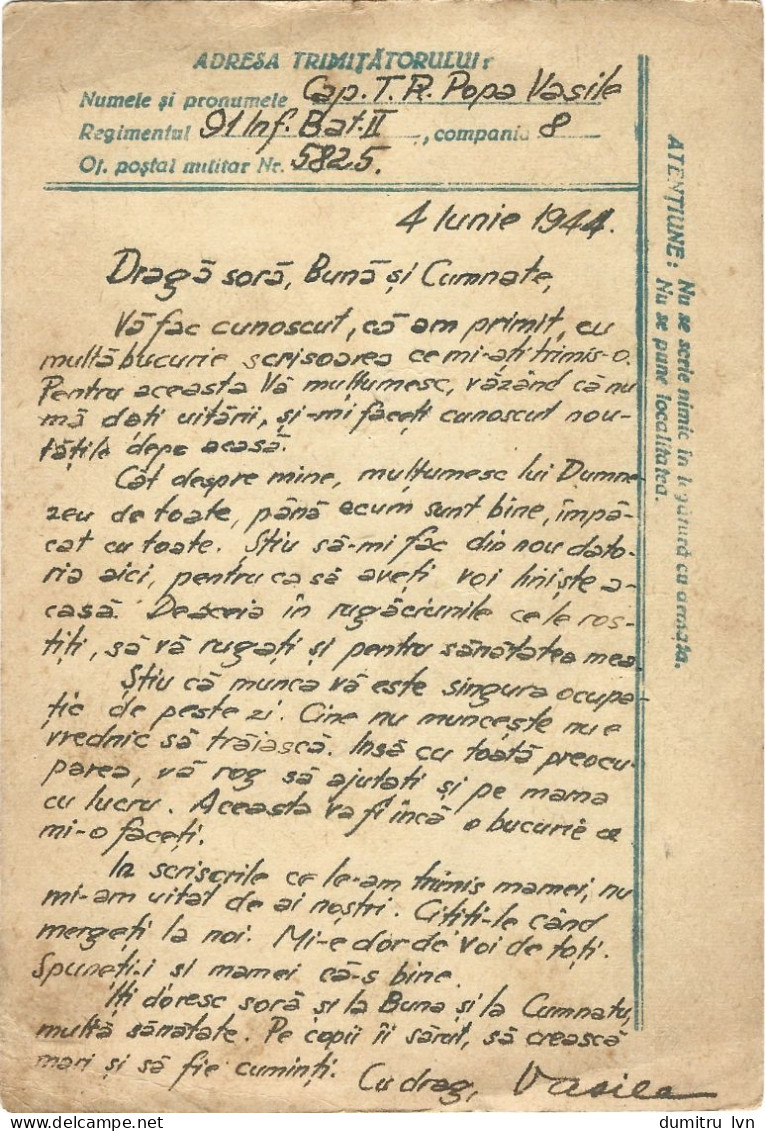 ADRESA TRIMIȚĂTORULUI:
Numele și pronumele Cap. T.R. Popa Vasile
Regimentul 91 Inf. Bat. II, compania 8
Of. poștal militar Nr. 5825.
4 Iunie 1944.
Dragă soră, Bună și Cumnate,
Vă fac cunoscut, că am primit, cu
multă bucurie scrisoarea ce mi-ați trimis-o.
Pentru aceasta Vă mulțumesc, văzând că nu
mă dați uitării, și-mi faceți cunoscut nou-
tățile depe acasă.
Cât despre mine, mulțumesc lui Dumne-
zeu de toate, până acum sunt bine, împă-
cat cu toate. Știu să-mi fac din nou dato-
ria aici, pentru ca să aveți voi liniște a-
casă. Deaceia în rugăciunile ce le ros-
tiți, să vă rugați și pentru sănătatea mea.
Știu că munca vă este singura ocupa-
ție de peste zi. Cine nu muncește nu e
vrednic să trăiască. Însă cu toată preocu-
parea, vă rog să ajutați și pe mama
cu lucru. Aceasta va fi încă o bucurie ce
mi-o faceți.
In scrisorile ce le-am trimis mamei, nu
mi-am uitat de ai noștri. Cititi-le când
mergeți la noi. Mi-e dor de voi de toți.
Spuneți-i si mamei că-s bine.
Iți doresc soră și la Buna și la Cumnatu,
multă sănătate. Pe copii îi sărut, să crească
mari și să fie cuminți. Cu drag, Vasile
ATENȚIUNE: Nu se scrie nimic în legătură cu armata.
Nu se pune localitatea.
dumitru_lvn